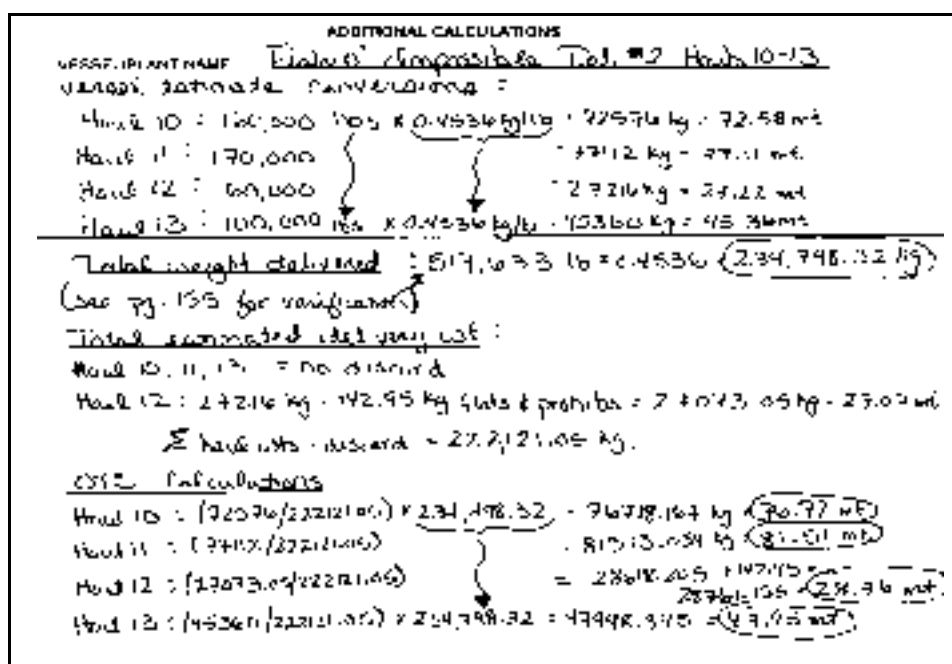 ADDITIONAL CALCULATIONS
VESSEL/PLANT NAME Del. #2 Hauls 10-13
Vessel Estimate Conversions :
Haul 10 : 160,000 lbs × 0.4536 kg/lb = 72576 kg = 72.58 mt
Haul 11 : 170,000 = 77112 kg = 77.11 mt
Haul 12 : 60,000 = 27216 kg = 27.22 mt
Haul 13 : 100,000 lbs × 0.4536 kg/lb = 45360 kg = 45.36 mt
Total weight delivered : 517,633 lb × 0.4536 = 234,798.32 kg
(see pg. 155 for verification)
Total estimated delivery wt :
Haul 10, 11, 13 = no discard
Haul 12 : 27216 kg - 142.95 kg = 27073.05 kg = 27.07 mt
Σ haul wts - discard = 222,121.05 kg.
OTC Calculations
Haul 10 : (72576/222121.05) × 234,798.32 = 76718.167 kg = 76.72 mt
Haul 11 : (77112/222121.05) = 81513.054 kg = 81.51 mt
Haul 12 : (27073.05/222121.05) = 28618.205 + 142.95 =
28761.155 = 28.76 mt
Haul 13 : (45360/222121.05) × 234,798.32 = 47948.345 = 47.95 mt